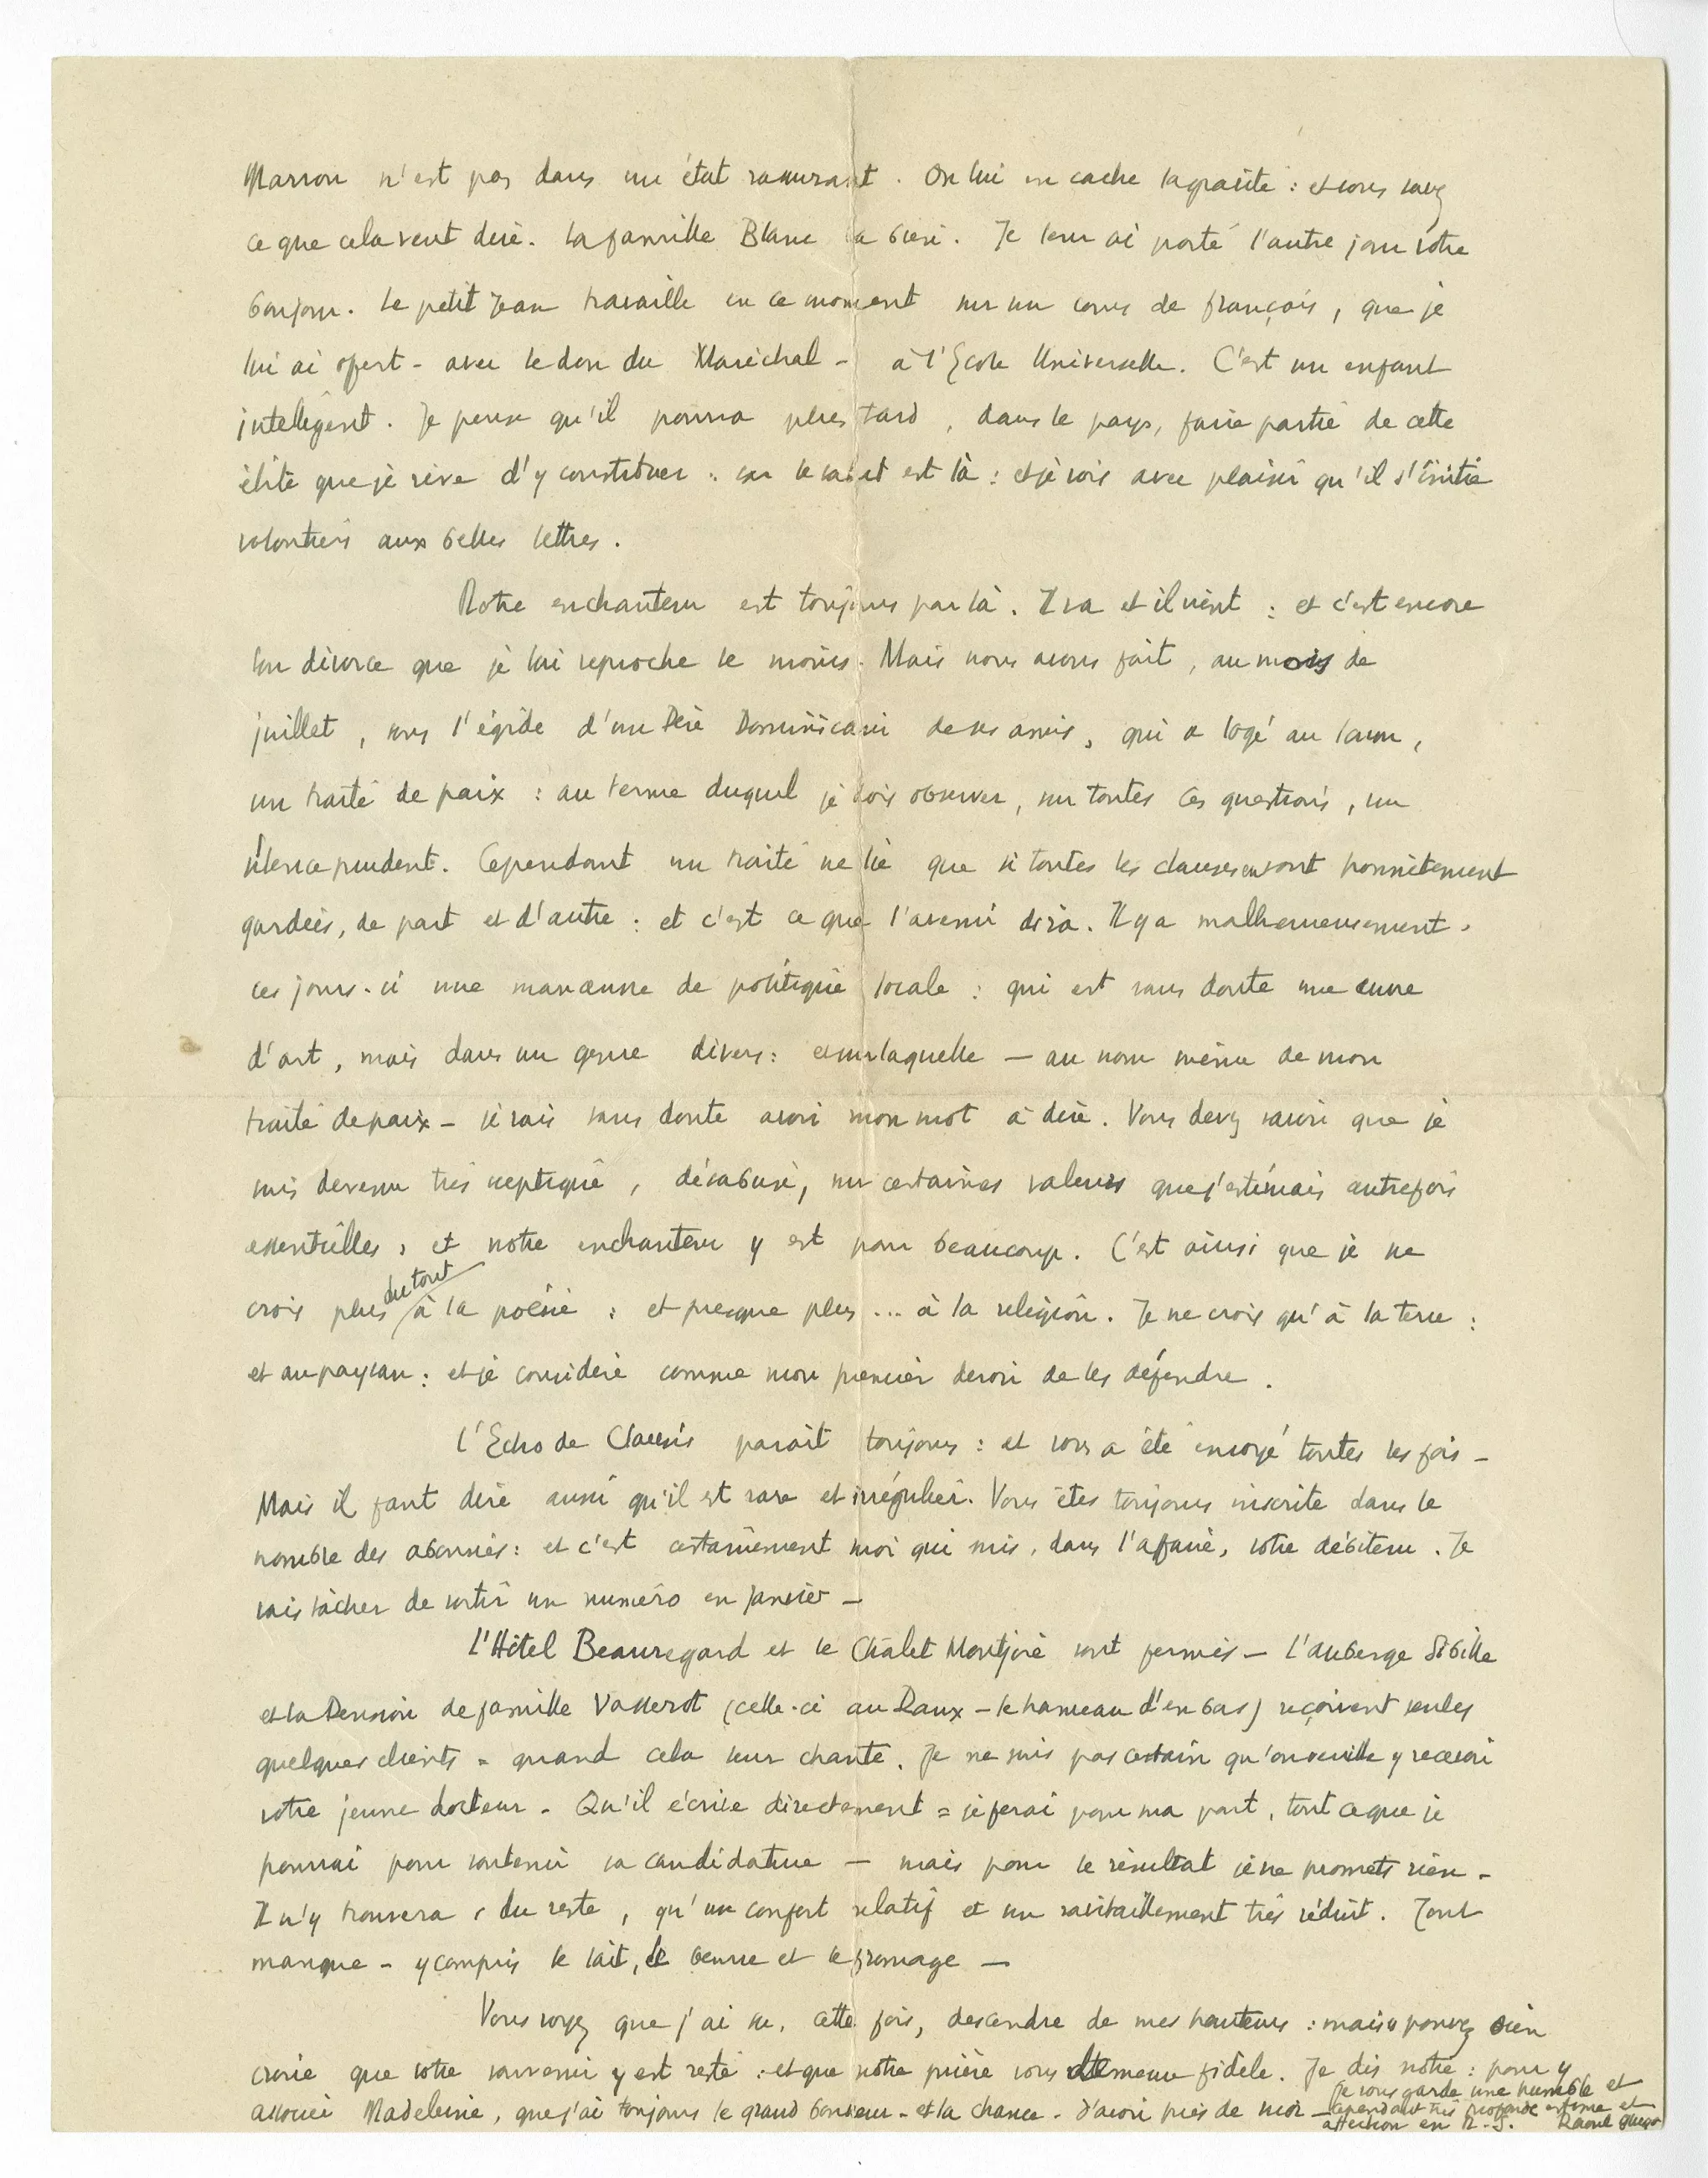 Marron n'est pas dans un état rassurant. On lui en cache la gravité : et vous savez
ce que cela veut dire. La famille Blanc va bien. Je leur ai porté l'autre jour votre
bonjour. Le petit Jean travaille en ce moment sur un cours de français, que je
lui ai offert - avec le don du Maréchal - à l'Ecole Universelle. C'est un enfant
intelligent. Je pense qu'il pourra plus tard, dans le pays, faire partie de cette
élite que je rêve d'y constituer : car le salut est là : et je vois avec plaisir qu'il s'initie
volontiers aux belles lettres.
Notre enchanteur est toujours par là. Il va et il vient : et c'est encore
son divorce que je lui reproche le moins. Mais nous avons fait, au mois de
juillet, sous l'égide d'un Père Dominicain de ses amis, qui a logé au
un traité de paix : au terme duquel je dois observer, sur toutes ces questions, un
silence prudent. Cependant un traité ne lie que si toutes les clauses en sont honnêtement
gardées, de part et d'autre : et c'est ce que l'avenir dira. Il y a malheureusement,
ces jours-ci une manœuvre de politique locale : qui est sans doute une œuvre
d'art, mais dans un genre divers : et sur laquelle — au nom même de mon
traité de paix - je vais sans doute avoir mon mot à dire. Vous devez savoir que je
suis devenu très sceptique, désabusé, sur certaines valeurs que j'estimais autrefois
essentielles, et notre enchanteur y est pour beaucoup. C'est ainsi que je ne
crois plus du tout à la poésie : et presque plus ... à la religion. Je ne crois qu'à la terre :
et au paysan : et je considère comme mon premier devoir de les défendre.
L'Echo de parait toujours : et vous a été envoyé toutes les fois -
Mais il faut dire aussi qu'il est rare et irrégulier. Vous êtes toujours inscrite dans le
nombre des abonnés : et c'est certainement moi qui suis, dans l'affaire, votre débiteur. Je
vais tâcher de sortir un numéro en Janvier -
L'Hôtel Beauregard et le Chalet Montjoie sont fermés - L'auberge Sibille
et la Pension de famille Vasserot (celle-ci au Raux - le hameau d'en bas) reçoivent seules
quelques clients = quand cela leur chante. Je ne suis pas certain qu'on veuille y recevoir
votre jeune docteur - Qu'il écrive directement = je ferai pour ma part, tout ce que je
pourrai pour soutenir sa candidature — mais pour le résultat je ne promets rien -
Il n'y trouvera, du reste, qu'un confort relatif et un ravitaillement très réduit. Tout
manque - y compris le lait, le beurre et le fromage —
Vous voyez que j'ai su, cette fois, descendre de mes hauteurs : mais v pouvez bien
croire que votre souvenir y est resté : et que notre prière vous demeure fidèle. Je dis notre : pour y
associer Madeleine, que j'ai toujours le grand bonheur - et la chance - d'avoir près de moi -
Je vous garde une humble et
cependant très profonde estime et
affection en N.S. Raoul